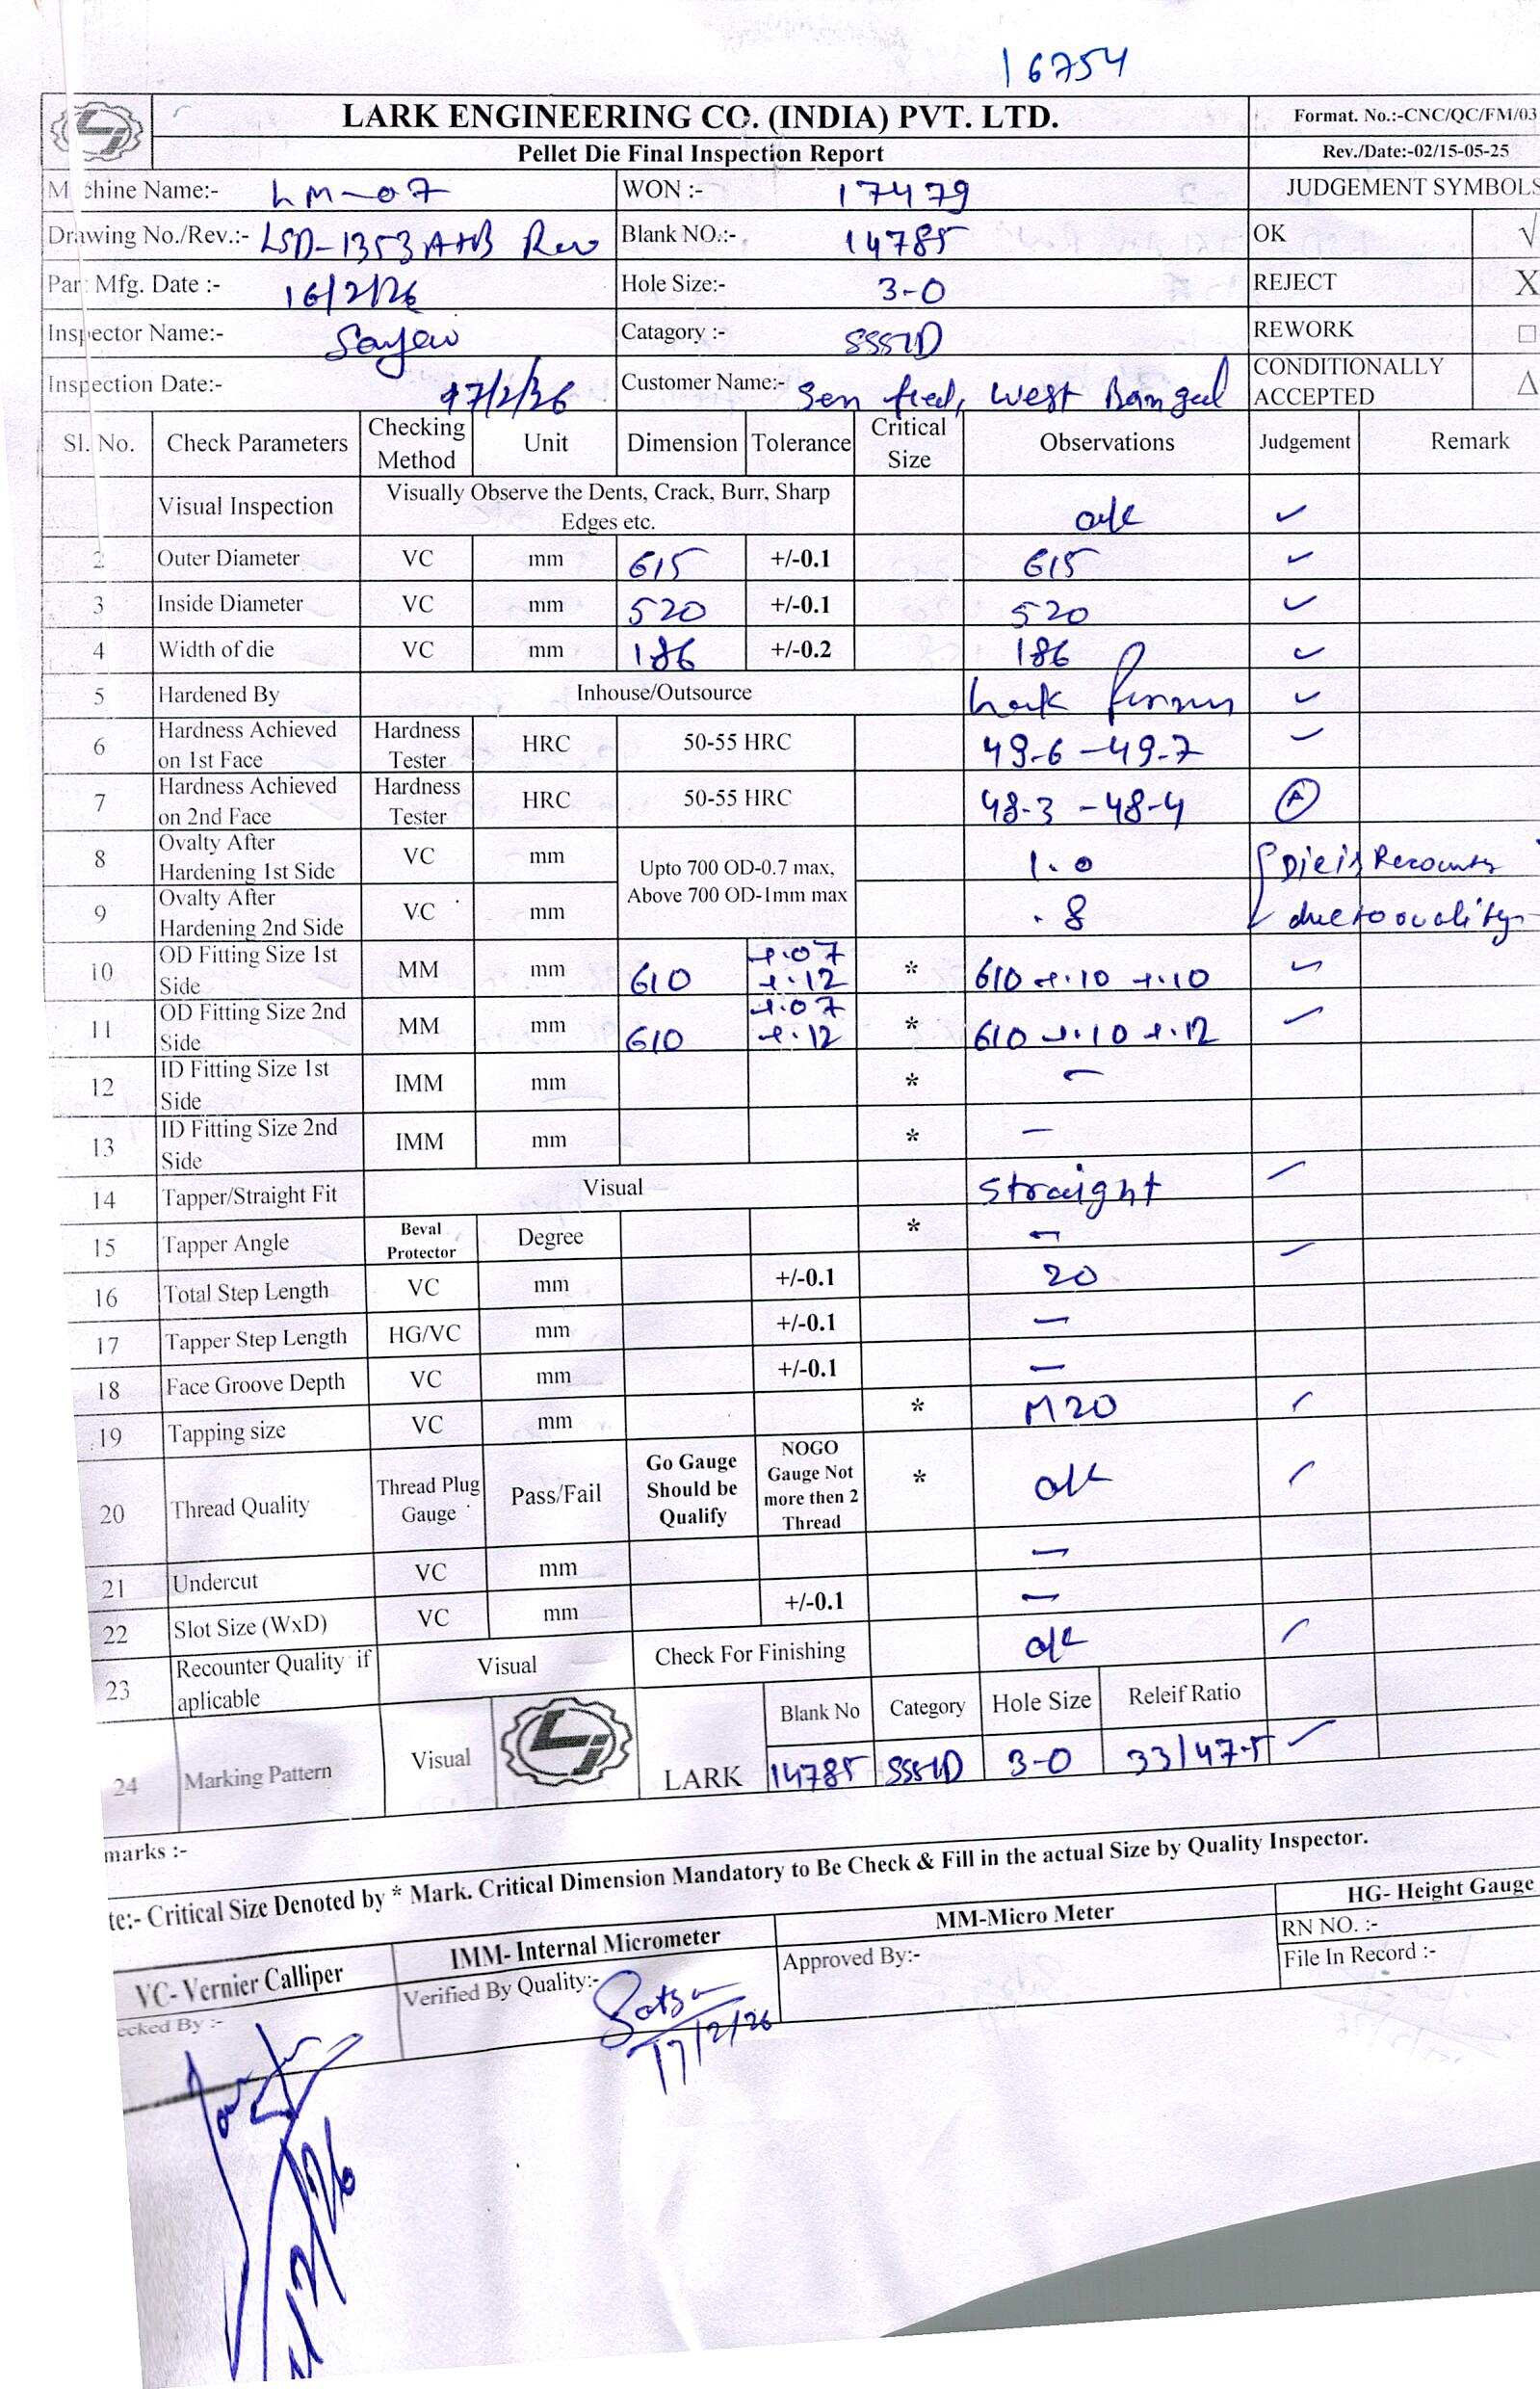 16754
LARK ENGINEERING CO. (INDIA) PVT. LTD.
Format. No.:-CNC/QC/FM/03
Pellet Die Final Inspection Report
Rev./Date:-02/15-05-25
Machine Name:- LM-07 WON :- 17479 JUDGEMENT SYMBOLS
Drawing No./Rev.:- LSD-1353 A+B Rev Blank NO.:- 14785 OK √
Par Mfg. Date :- 16/2/26 Hole Size:- 3-0 REJECT X
Inspector Name:- Catagory :- REWORK □
Inspection Date:- 17/2/26 Customer Name:- Sen feed, West Bangal CONDITIONALLY ACCEPTED Δ
Sl. No. Check Parameters Checking Method Unit Dimension Tolerance Critical Size Observations Judgement Remark
Visual Inspection Visually Observe the Dents, Crack, Burr, Sharp Edges etc. o/k ✓
2 Outer Diameter VC mm 615 +/-0.1 615 ✓
3 Inside Diameter VC mm 520 +/-0.1 520 ✓
4 Width of die VC mm 186 +/-0.2 186 ✓
5 Hardened By Inhouse/Outsource Lark ✓
6 Hardness Achieved on 1st Face Hardness Tester HRC 50-55 HRC 49-6 - 49-7 ✓
7 Hardness Achieved on 2nd Face Hardness Tester HRC 50-55 HRC 48-3 - 48-4
8 Ovalty After Hardening 1st Side VC mm Upto 700 OD-0.7 max, Above 700 OD-1mm max 1.0 Die is Recounter
9 Ovalty After Hardening 2nd Side VC mm .8 due to ovality
10 OD Fitting Size 1st Side MM mm 610 +.07 +.12 * 610 +.10 +.10 ✓
11 OD Fitting Size 2nd Side MM mm 610 +.07 +.12 * 610 +.10 +.12 ✓
12 ID Fitting Size 1st Side IMM mm * -
13 ID Fitting Size 2nd Side IMM mm * -
14 Tapper/Straight Fit Visual Straight ✓
15 Tapper Angle Beval Protector Degree * -
16 Total Step Length VC mm +/-0.1 20 ✓
17 Tapper Step Length HG/VC mm +/-0.1 -
18 Face Groove Depth VC mm +/-0.1 -
19 Tapping size VC mm * M20 ✓
20 Thread Quality Thread Plug Gauge Pass/Fail Go Gauge Should be Qualify NOGO Gauge Not more then 2 Thread * o/k ✓
21 Undercut VC mm -
22 Slot Size (WxD) VC mm +/-0.1 -
23 Recounter Quality if aplicable Visual Check For Finishing o/k ✓
24 Marking Pattern Visual LARK Blank No Category Hole Size Releif Ratio
14785 3-0 33/47-5 ✓
marks :-
te:- Critical Size Denoted by * Mark. Critical Dimension Mandatory to Be Check & Fill in the actual Size by Quality Inspector.
VC- Vernier Calliper IMM- Internal Micrometer MM-Micro Meter HG- Height Gauge
ecked By :- Verified By Quality:- Approved By:- RN NO. :-
File In Record :-
17/2/26